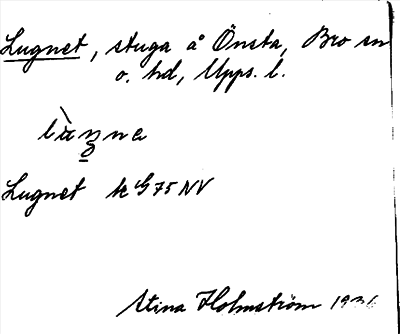 Lugnet, stuga å Önsta, Bro sn
o. hd, Upps. l.
Lugnet G75 NV
Stina Holmström